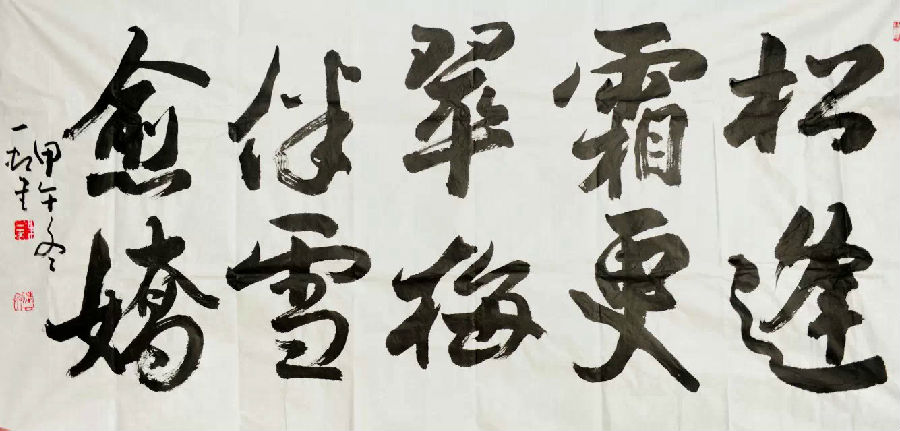 松逢
霜更
翠梅
伴雪
愈嬌
甲午冬